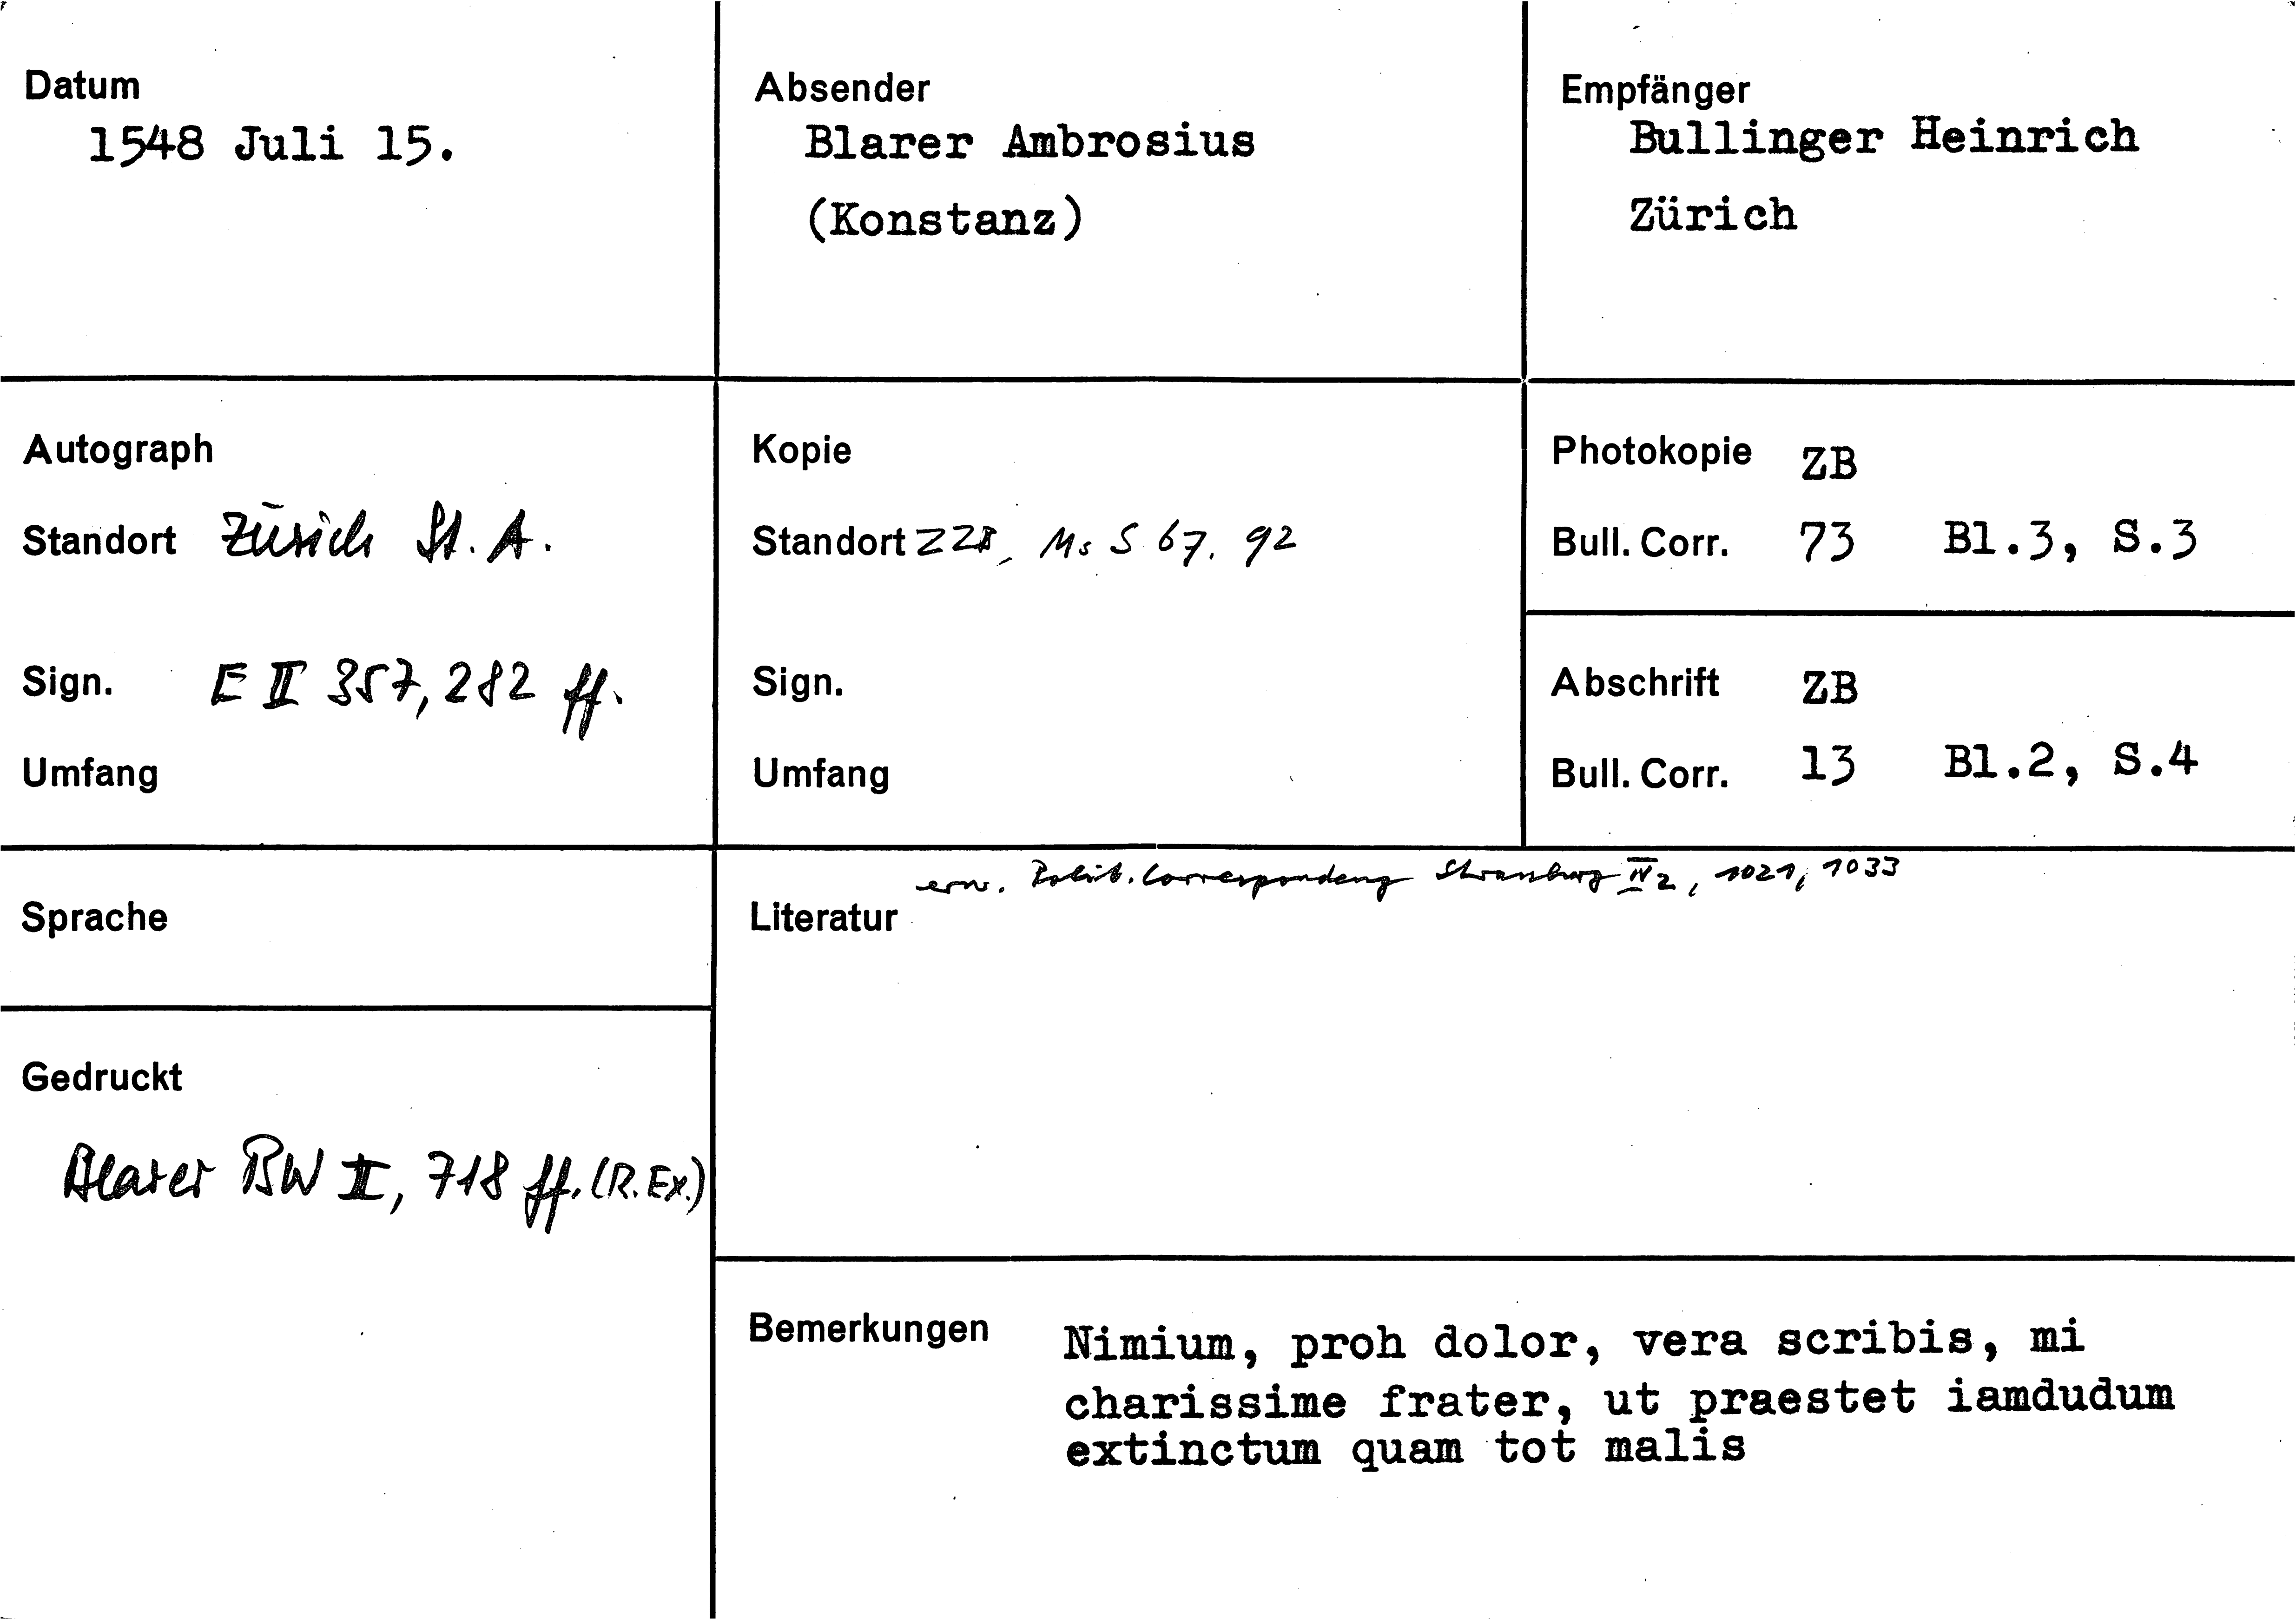 Datum
1548 Juli 15.
Absender
Blarer Ambrosius
(Konstanz)
Empfänger
Bullinger Heinrich
Zürich
Autograph
Standort Zürich St. A.
Sign. E II 357, 282 ff.
Umfang
Kopie
Standort ZZB, Ms S 67, 92
Sign.
Umfang
Photokopie ZB
Bull. Corr. 73 Bl.3, S.3
Abschrift ZB
Bull. Corr. 13 Bl.2, S.4
Sprache
Gedruckt
Blarer BW II, 718 ff. (R. Ex.)
erw. Polit. Correspondenz Strassburg IV 2, 1021, 1033
Literatur
Bemerkungen
Nimium, proh dolor, vera scribis, mi
charissime frater, ut praestet iamdudum
extinctum quam tot malis